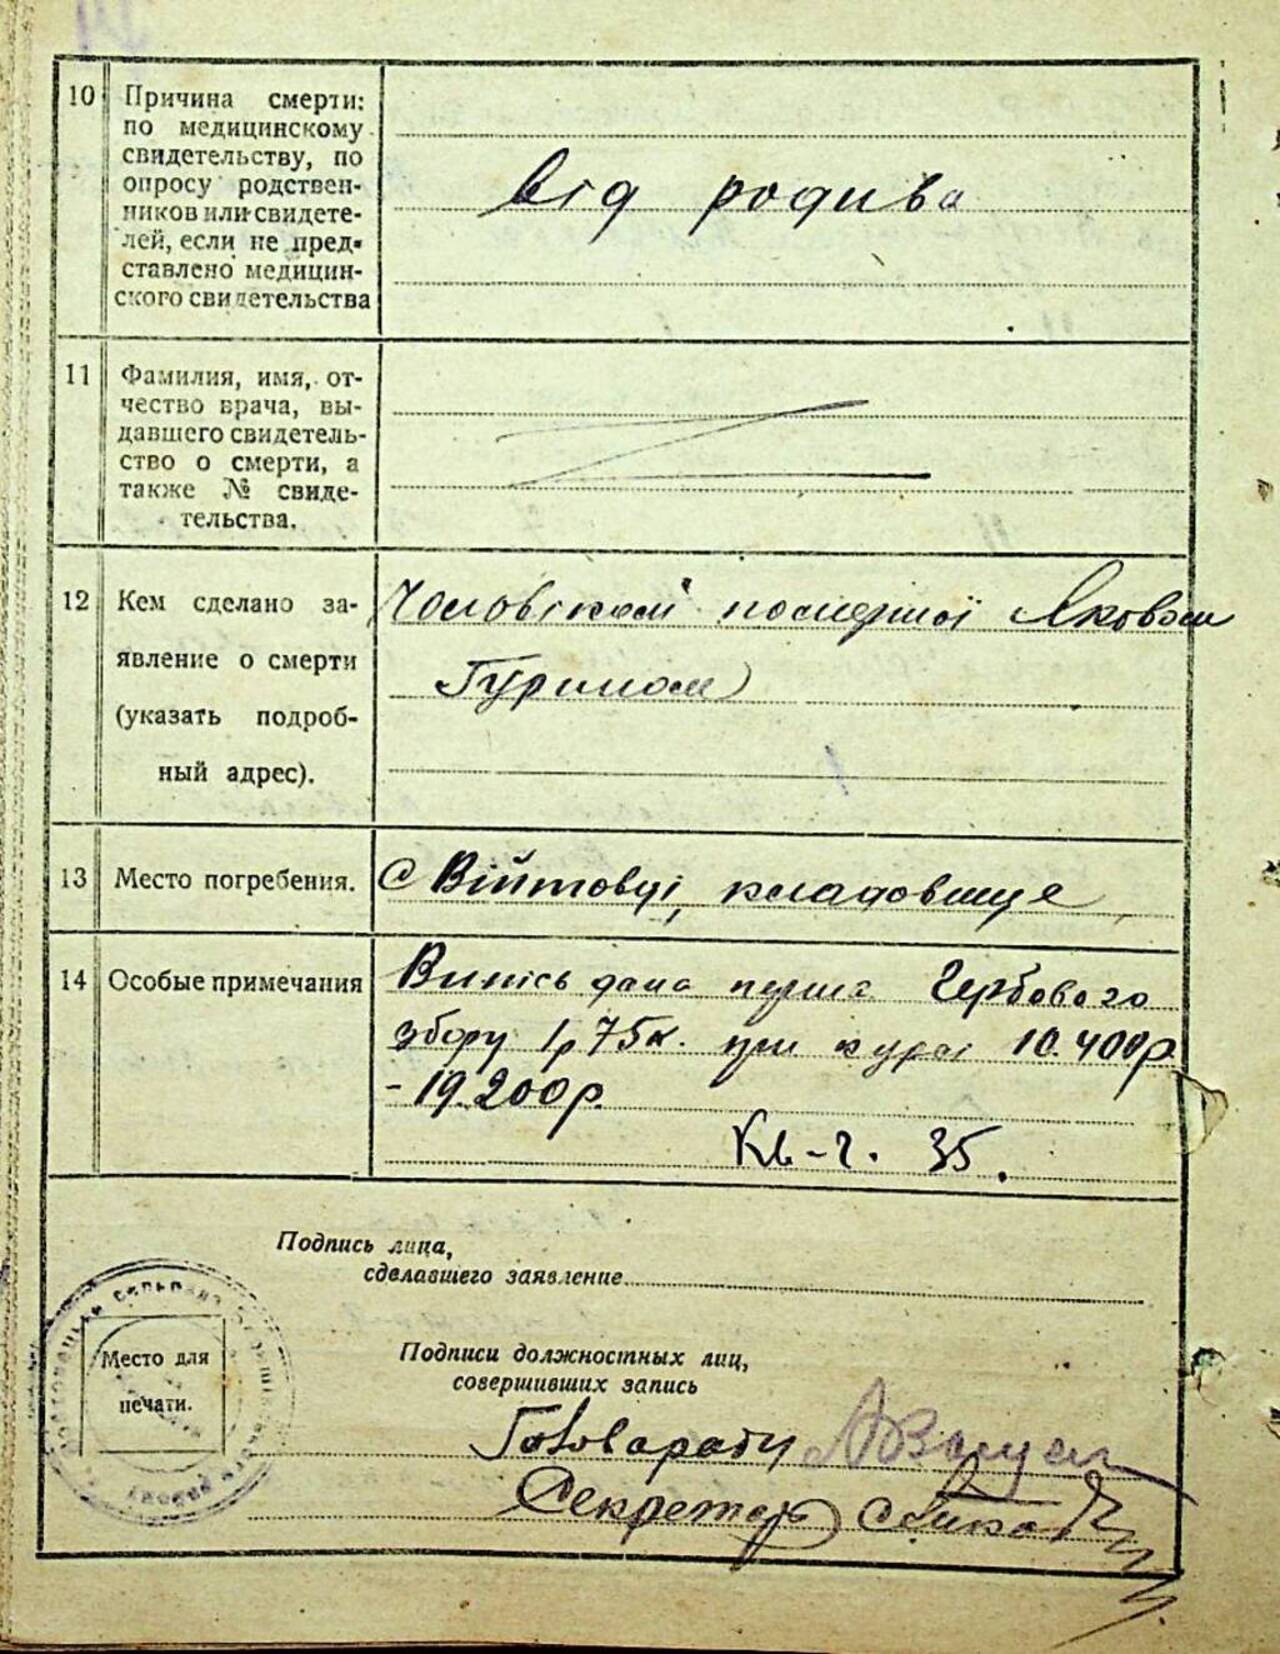 10 Причина смерти:
по медицинскому
свидетельству, по
опросу родствен-
ников или свидете-
лей, если не пред-
ставлено медицин-
ского свидетельства
від родива
11 Фамилия, имя, от-
чество врача, вы-
давшего свидетель-
ство о смерти, а
также № свиде-
тельства.
12 Кем сделано за-
явление о смерти
(указать подроб-
ный адрес).
Чоловіком помершої Яковом
13 Место погребения.
с Війтовці, кладовище
14 Особые примечания
Випісь дана перша Гербового
збору 1р 75к. при курсі 10.400р
- 19.200р.
Кв-г. 35.
Подпись лица,
сделавшего заявление
Место для
печати.
Подписи должностных лиц,
совершивших запись
Голова ради
Секретарь